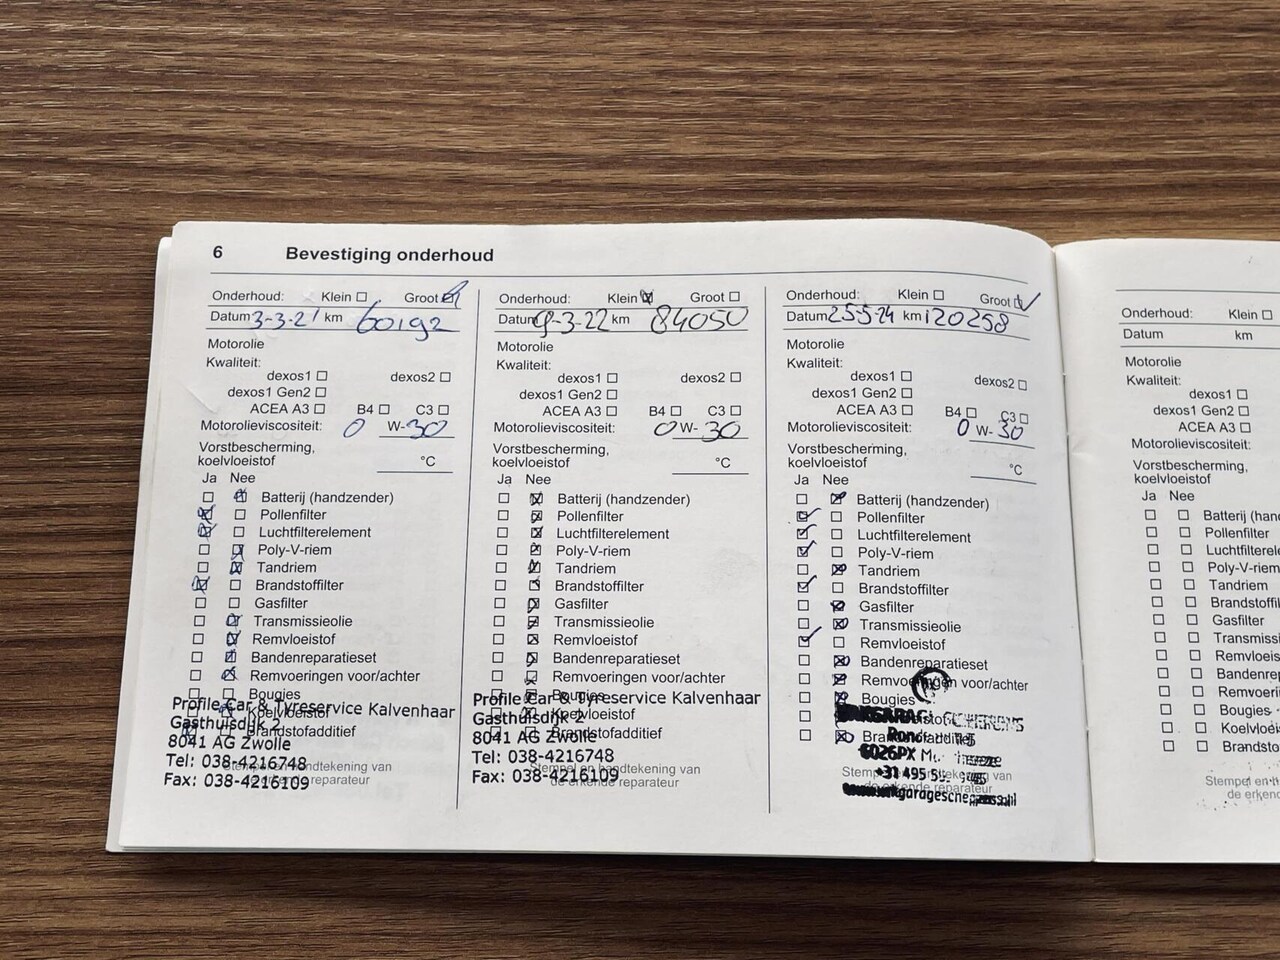 6 Bevestiging onderhoud
Onderhoud: Klein Groot
Datum 3-3-21 km 60192
Motorolie
Kwaliteit:
dexos1 dexos2
dexos1 Gen2
ACEA A3 B4 C3
Motorolieviscositeit: 0 W-30
Vorstbescherming,
koelvloeistof °C
Ja Nee
Batterij (handzender)
Pollenfilter
Luchtfilterelement
Poly-V-riem
Tandriem
Brandstoffilter
Gasfilter
Transmissieolie
Remvloeistof
Bandenreparatieset
Remvoeringen voor/achter
Bougies
Koelvloeistof
Brandstofadditief
Profile Car & Tyreservice Kalvenhaar
Gasthuisdijk 2
8041 AG Zwolle
Tel: 038-4216748
Fax: 038-4216109
Stempel en handtekening van
de erkende reparateur
Onderhoud: Klein Groot
Datum 9-3-22 km 84050
Motorolie
Kwaliteit:
dexos1 dexos2
dexos1 Gen2
ACEA A3 B4 C3
Motorolieviscositeit: 0 W-30
Vorstbescherming,
koelvloeistof °C
Ja Nee
Batterij (handzender)
Pollenfilter
Luchtfilterelement
Poly-V-riem
Tandriem
Brandstoffilter
Gasfilter
Transmissieolie
Remvloeistof
Bandenreparatieset
Remvoeringen voor/achter
Bougies
Koelvloeistof
Brandstofadditief
Profile Car & Tyreservice Kalvenhaar
Gasthuisdijk 2
8041 AG Zwolle
Tel: 038-4216748
Fax: 038-4216109
Stempel en handtekening van
de erkende reparateur
Onderhoud: Klein Groot
Datum 25-5-24 km 120258
Motorolie
Kwaliteit:
dexos1 dexos2
dexos1 Gen2
ACEA A3 B4 C3
Motorolieviscositeit: 0 W-30
Vorstbescherming,
koelvloeistof °C
Ja Nee
Batterij (handzender)
Pollenfilter
Luchtfilterelement
Poly-V-riem
Tandriem
Brandstoffilter
Gasfilter
Transmissieolie
Remvloeistof
Bandenreparatieset
Remvoeringen voor/achter
Bougies
Koelvloeistof
Brandstofadditief
6026PX
+31 495
Stempel en handtekening van
de erkende reparateur
Onderhoud: Klein
Datum km
Motorolie
Kwaliteit:
dexos1
dexos1 Gen2
ACEA A3
Motorolieviscositeit:
Vorstbescherming,
koelvloeistof
Ja Nee
Batterij (han
Pollenfilter
Luchtfilterele
Poly-V-riem
Tandriem
Brandstoffil
Gasfilter
Transmiss
Remvloeis
Bandenrep
Remvoerin
Bougies
Koelvloei
Brandsto
Stempel en h
de erken